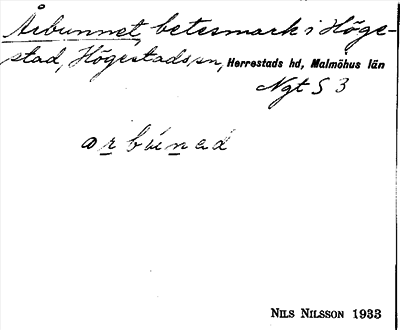 Årbunnet, betesmark i Höge-
stad, Högestads sn, Herrestads hd, Malmöhus län
Ngt S 3
arbúnad
NILS NILSSON 1933